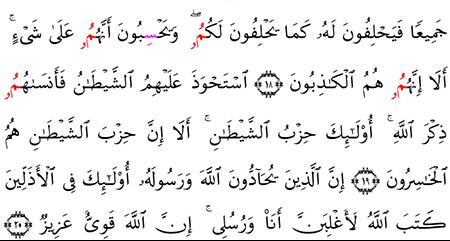 جَمِيعًا فَيَحْلِفُونَ لَهُۥ كَمَا يَحْلِفُونَ لَكُمُۥ ۖ وَيَحْسِبُونَ أَنَّهُمُۥ عَلَىٰ شَىْءٍ ۚ
أَلَا إِنَّهُمُۥ هُمُ ٱلْكَـٰذِبُونَ ١٨ ٱسْتَحْوَذَ عَلَيْهِمُ ٱلشَّيْطَـٰنُ فَأَنسَىٰهُمُۥ
ذِكْرَ ٱللَّهِ ۚ أُوْلَـٰٓئِكَ حِزْبُ ٱلشَّيْطَـٰنِ ۚ أَلَا إِنَّ حِزْبَ ٱلشَّيْطَـٰنِ هُمُ
ٱلْخَـٰسِرُونَ ١٩ إِنَّ ٱلَّذِينَ يُحَآدُّونَ ٱللَّهَ وَرَسُولَهُۥ أُوْلَـٰٓئِكَ فِى ٱلْأَذَلِّينَ
كَتَبَ ٱللَّهُ لَأَغْلِبَنَّ أَنَا۠ وَرُسُلِى ۚ إِنَّ ٱللَّهَ قَوِىٌّ عَزِيزٌ ٢٠